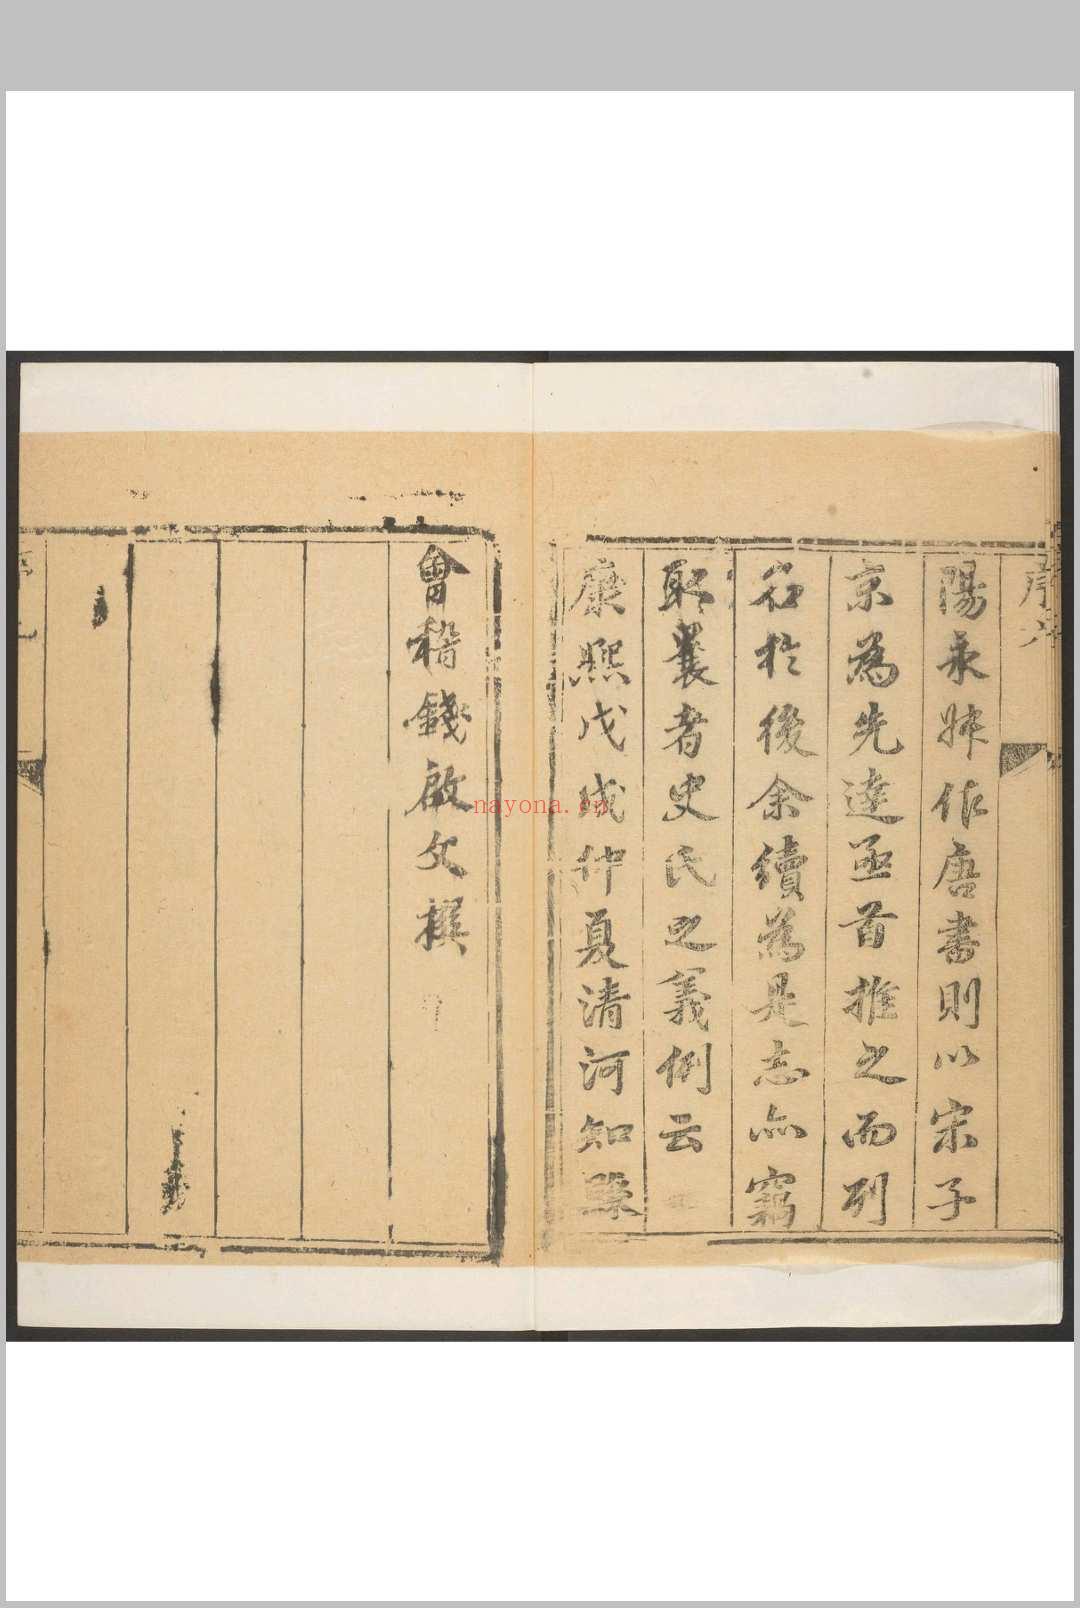 序六
陽永叔作唐書則以宋子
京為先達亟首推之而列
名於後余續為是志亦竊
取曩者史氏之義例云
康熙戊戌仲夏清河知縣
會稽錢啟文撰
nayona.cn